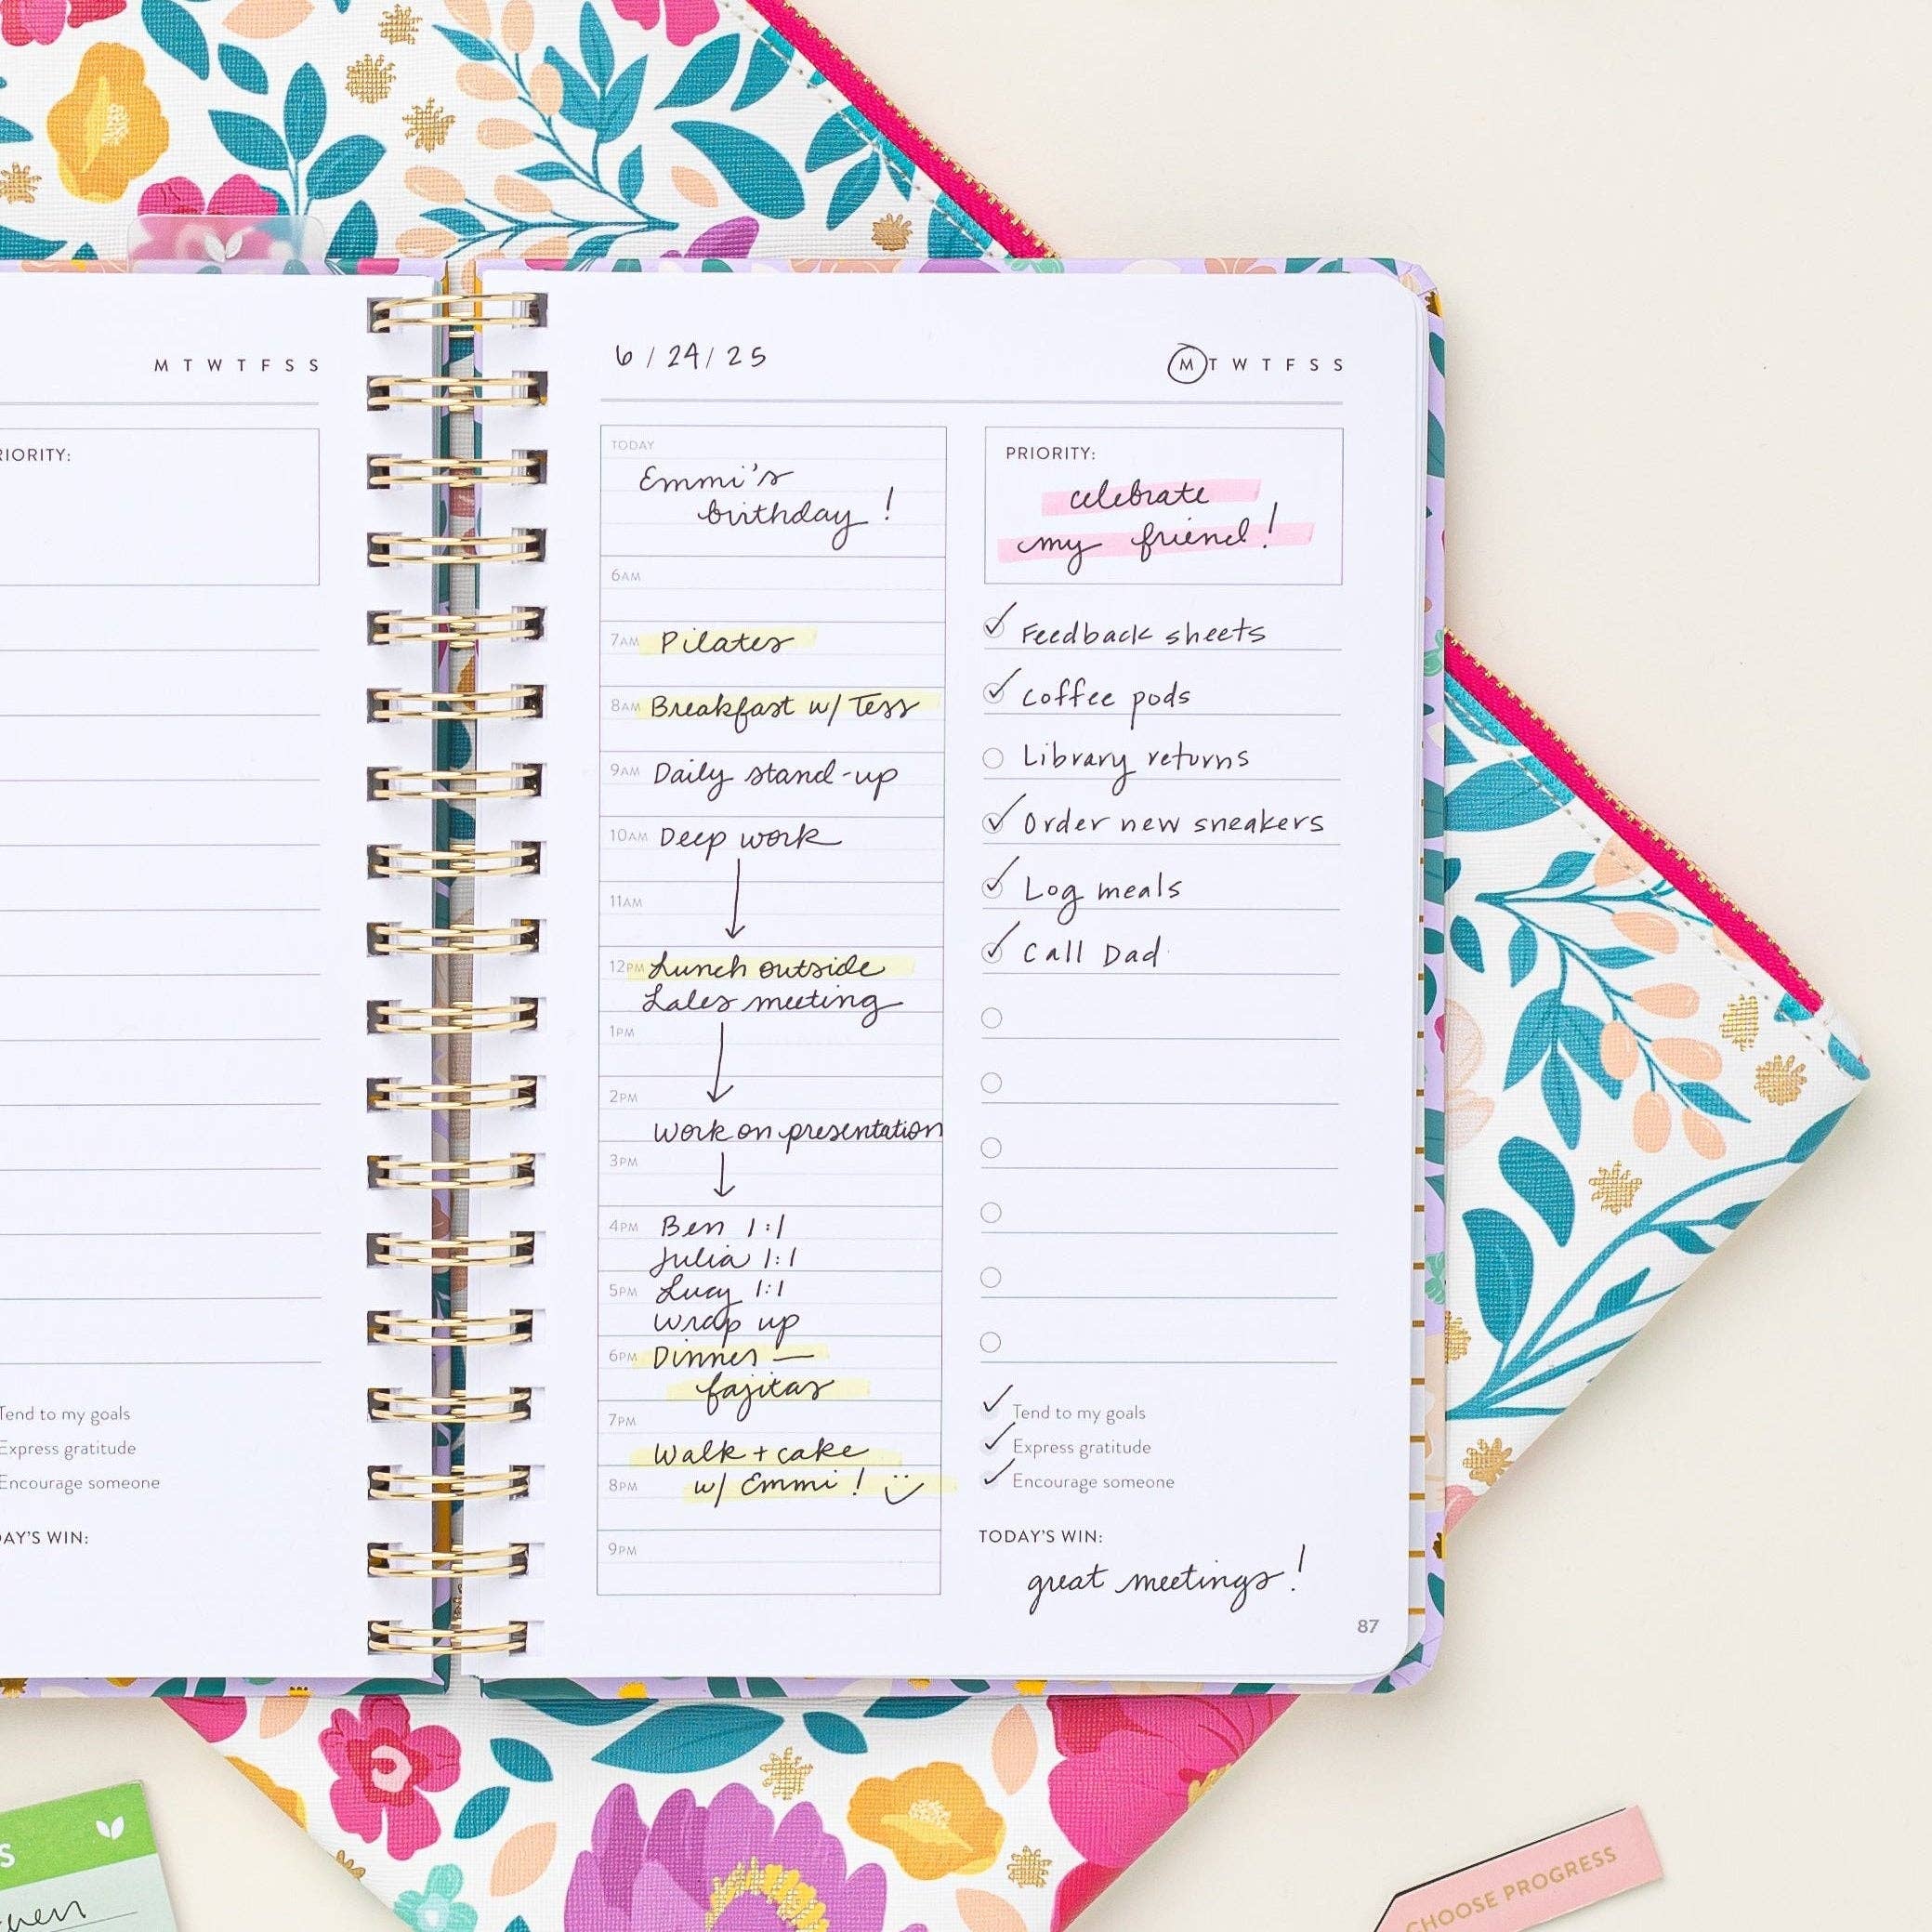 M T W T F S S
RIORITY:
Tend to my goals
Express gratitude
Encourage someone
AY'S WIN:
6/24/25
M T W T F S S
TODAY
Emmi's
birthday!
6AM
7AM Pilates
8AM Breakfast w/ Tess
9AM Daily stand-up
10AM Deep work
11AM
12PM Lunch outside
Sales meeting
1PM
2PM
Work on presentation
3PM
4PM Ben 1:1
Julia 1:1
5PM Lucy 1:1
Wrap up
6PM Dinner —
fajitas
7PM
Walk + cake
8PM w/ Emmi!
9PM
PRIORITY:
celebrate
my friend!
Feedback sheets
Coffee pods
Library returns
Order new sneakers
Log meals
Call Dad
Tend to my goals
Express gratitude
Encourage someone
TODAY'S WIN:
great meetings!
87
S
CHOOSE PROGRESS